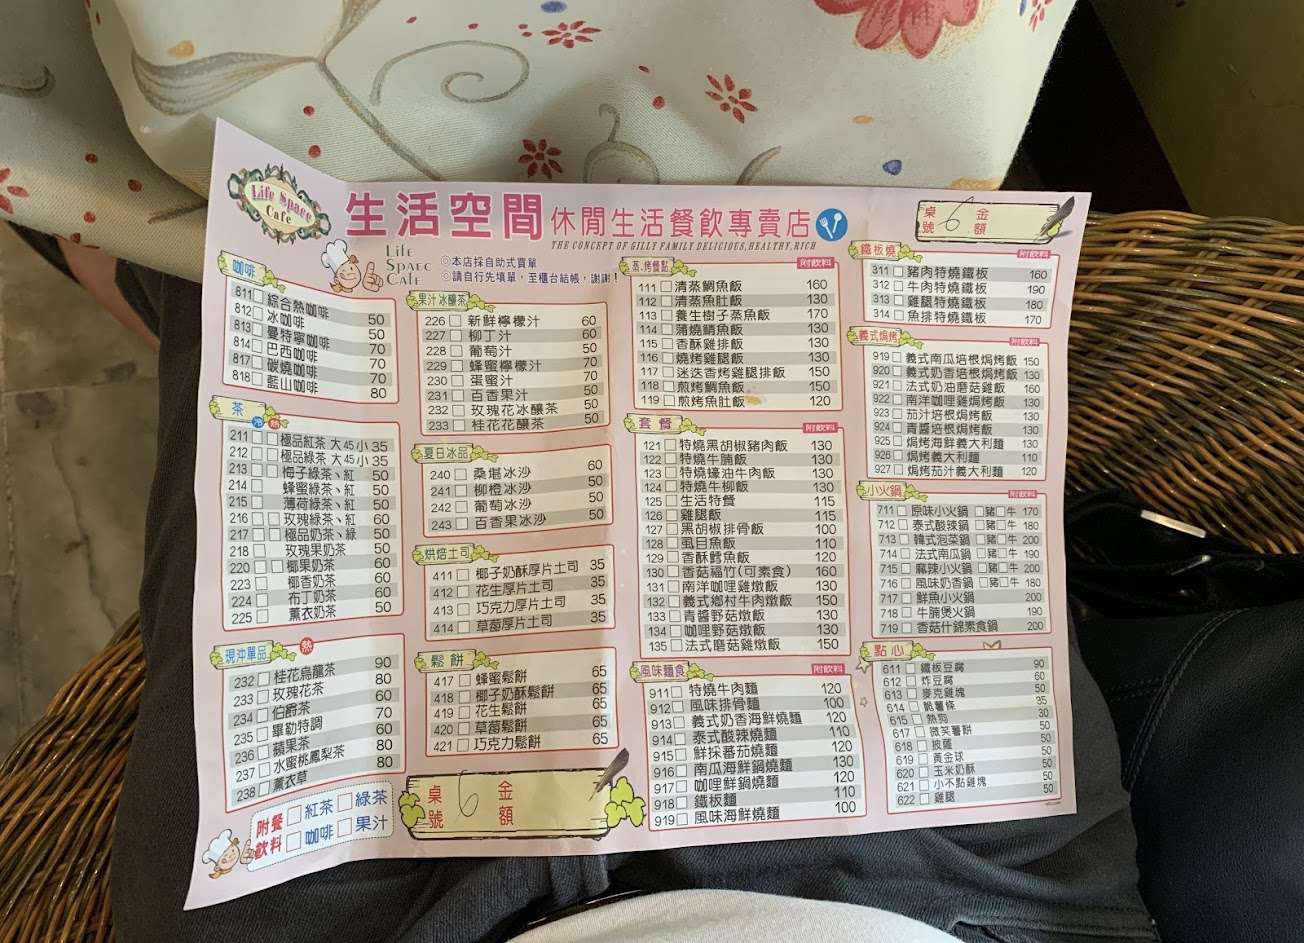 Life Space
Cafe
生活空間 休閒生活餐飲專賣店
THE CONCEPT OF GILLY FAMILY DELICIOUS, HEALTHY, RICH
Life
Spaec
Cafe
◎本店採自助式買單
◎請自行先填單，至櫃台結帳，謝謝！
桌號 6 金額
咖啡
811 綜合熱咖啡 50
812 冰咖啡 50
813 曼特寧咖啡 70
814 巴西咖啡 70
817 碳燒咖啡 70
818 藍山咖啡 80
茶 冷 熱
211 極品紅茶 大45小35
212 極品綠茶 大45小35
213 梅子綠茶、紅 50
214 蜂蜜綠茶、紅 50
215 薄荷綠茶、紅 50
216 玫瑰綠茶、紅 60
217 極品奶茶、綠 50
218 玫瑰果奶茶 50
220 椰果奶茶 60
223 椰香奶茶 60
224 布丁奶茶 60
225 薰衣奶茶 50
現沖單品 熱
232 桂花烏龍茶 90
233 玫瑰花茶 80
234 伯爵茶 60
235 畢勒特調 70
236 蘋果茶 60
237 水蜜桃鳳梨茶 80
238 薰衣草 80
附餐飲料 紅茶 綠茶
咖啡 果汁
果汁冰釀茶
226 新鮮檸檬汁 60
227 柳丁汁 60
228 葡萄汁 50
229 蜂蜜檸檬汁 70
230 蛋蜜汁 70
231 百香果汁 50
232 玫瑰花冰釀茶 50
233 桂花花釀茶 50
夏日冰品
240 桑堪冰沙 60
241 柳橙冰沙 50
242 葡萄冰沙 50
243 百香果冰沙 50
烘焙土司
411 椰子奶酥厚片土司 35
412 花生厚片土司 35
413 巧克力厚片土司 35
414 草莓厚片土司 35
鬆餅
417 蜂蜜鬆餅 65
418 椰子奶酥鬆餅 65
419 花生鬆餅 65
420 草莓鬆餅 65
421 巧克力鬆餅 65
桌號 6 金額
蒸.烤餐點 附飲料
111 清蒸鯛魚飯 160
112 清蒸魚肚飯 130
113 養生樹子蒸魚飯 170
114 蒲燒鯖魚飯 130
115 香酥雞排飯 130
116 燒烤雞腿飯 130
117 迷迭香烤雞腿排飯 150
118 煎烤鯛魚飯 150
119 煎烤魚肚飯 120
套餐 附飲料
121 特燒黑胡椒豬肉飯 130
122 特燒牛腩飯 130
123 特燒蠔油牛肉飯 130
124 特燒牛柳飯 130
125 生活特餐 115
126 雞腿飯 115
127 黑胡椒排骨飯 100
128 虱目魚飯 110
129 香酥鱈魚飯 120
130 香菇福竹(可素食) 160
131 南洋咖哩雞燉飯 130
132 義式鄉村牛肉燉飯 150
133 青醬野菇燉飯 130
134 咖哩野菇燉飯 130
135 法式磨菇雞燉飯 150
風味麵食 附飲料
911 特燒牛肉麵 120
912 風味排骨麵 100
913 義式奶香海鮮燒麵 120
914 泰式酸辣燒麵 110
915 鮮採蕃茄燒麵 120
916 南瓜海鮮鍋燒麵 130
917 咖哩鮮鍋燒麵 120
918 鐵板麵 110
919 風味海鮮燒麵 100
鐵板燒 附飲料
311 豬肉特燒鐵板 160
312 牛肉特燒鐵板 190
313 雞腿特燒鐵板 180
314 魚排特燒鐵板 170
義式焗烤 附飲料
919 義式南瓜培根焗烤飯 150
920 義式奶香培根焗烤飯 130
921 法式奶油磨菇雞飯 160
922 南洋咖哩雞焗烤飯 130
923 茄汁培根焗烤飯 130
924 青醬培根焗烤飯 130
925 焗烤海鮮義大利麵 130
926 焗烤義大利麵 110
927 焗烤茄汁義大利麵 120
小火鍋 附飲料
711 原味小火鍋 豬 牛 170
712 泰式酸辣鍋 豬 牛 180
713 韓式泡菜鍋 豬 牛 200
714 法式南瓜鍋 豬 牛 190
715 麻辣小火鍋 豬 牛 200
716 風味奶香鍋 豬 牛 180
717 鮮魚小火鍋 200
718 牛腩煲火鍋 190
719 香菇什錦素食鍋 200
點心
611 鐵板豆腐 90
612 炸豆腐 60
613 麥克雞塊 50
614 脆薯條 35
615 熱狗 30
617 微笑薯餅 50
618 披薩 50
619 黃金球 50
620 玉米奶酥 50
621 小不點雞塊 50
622 雞腿 50